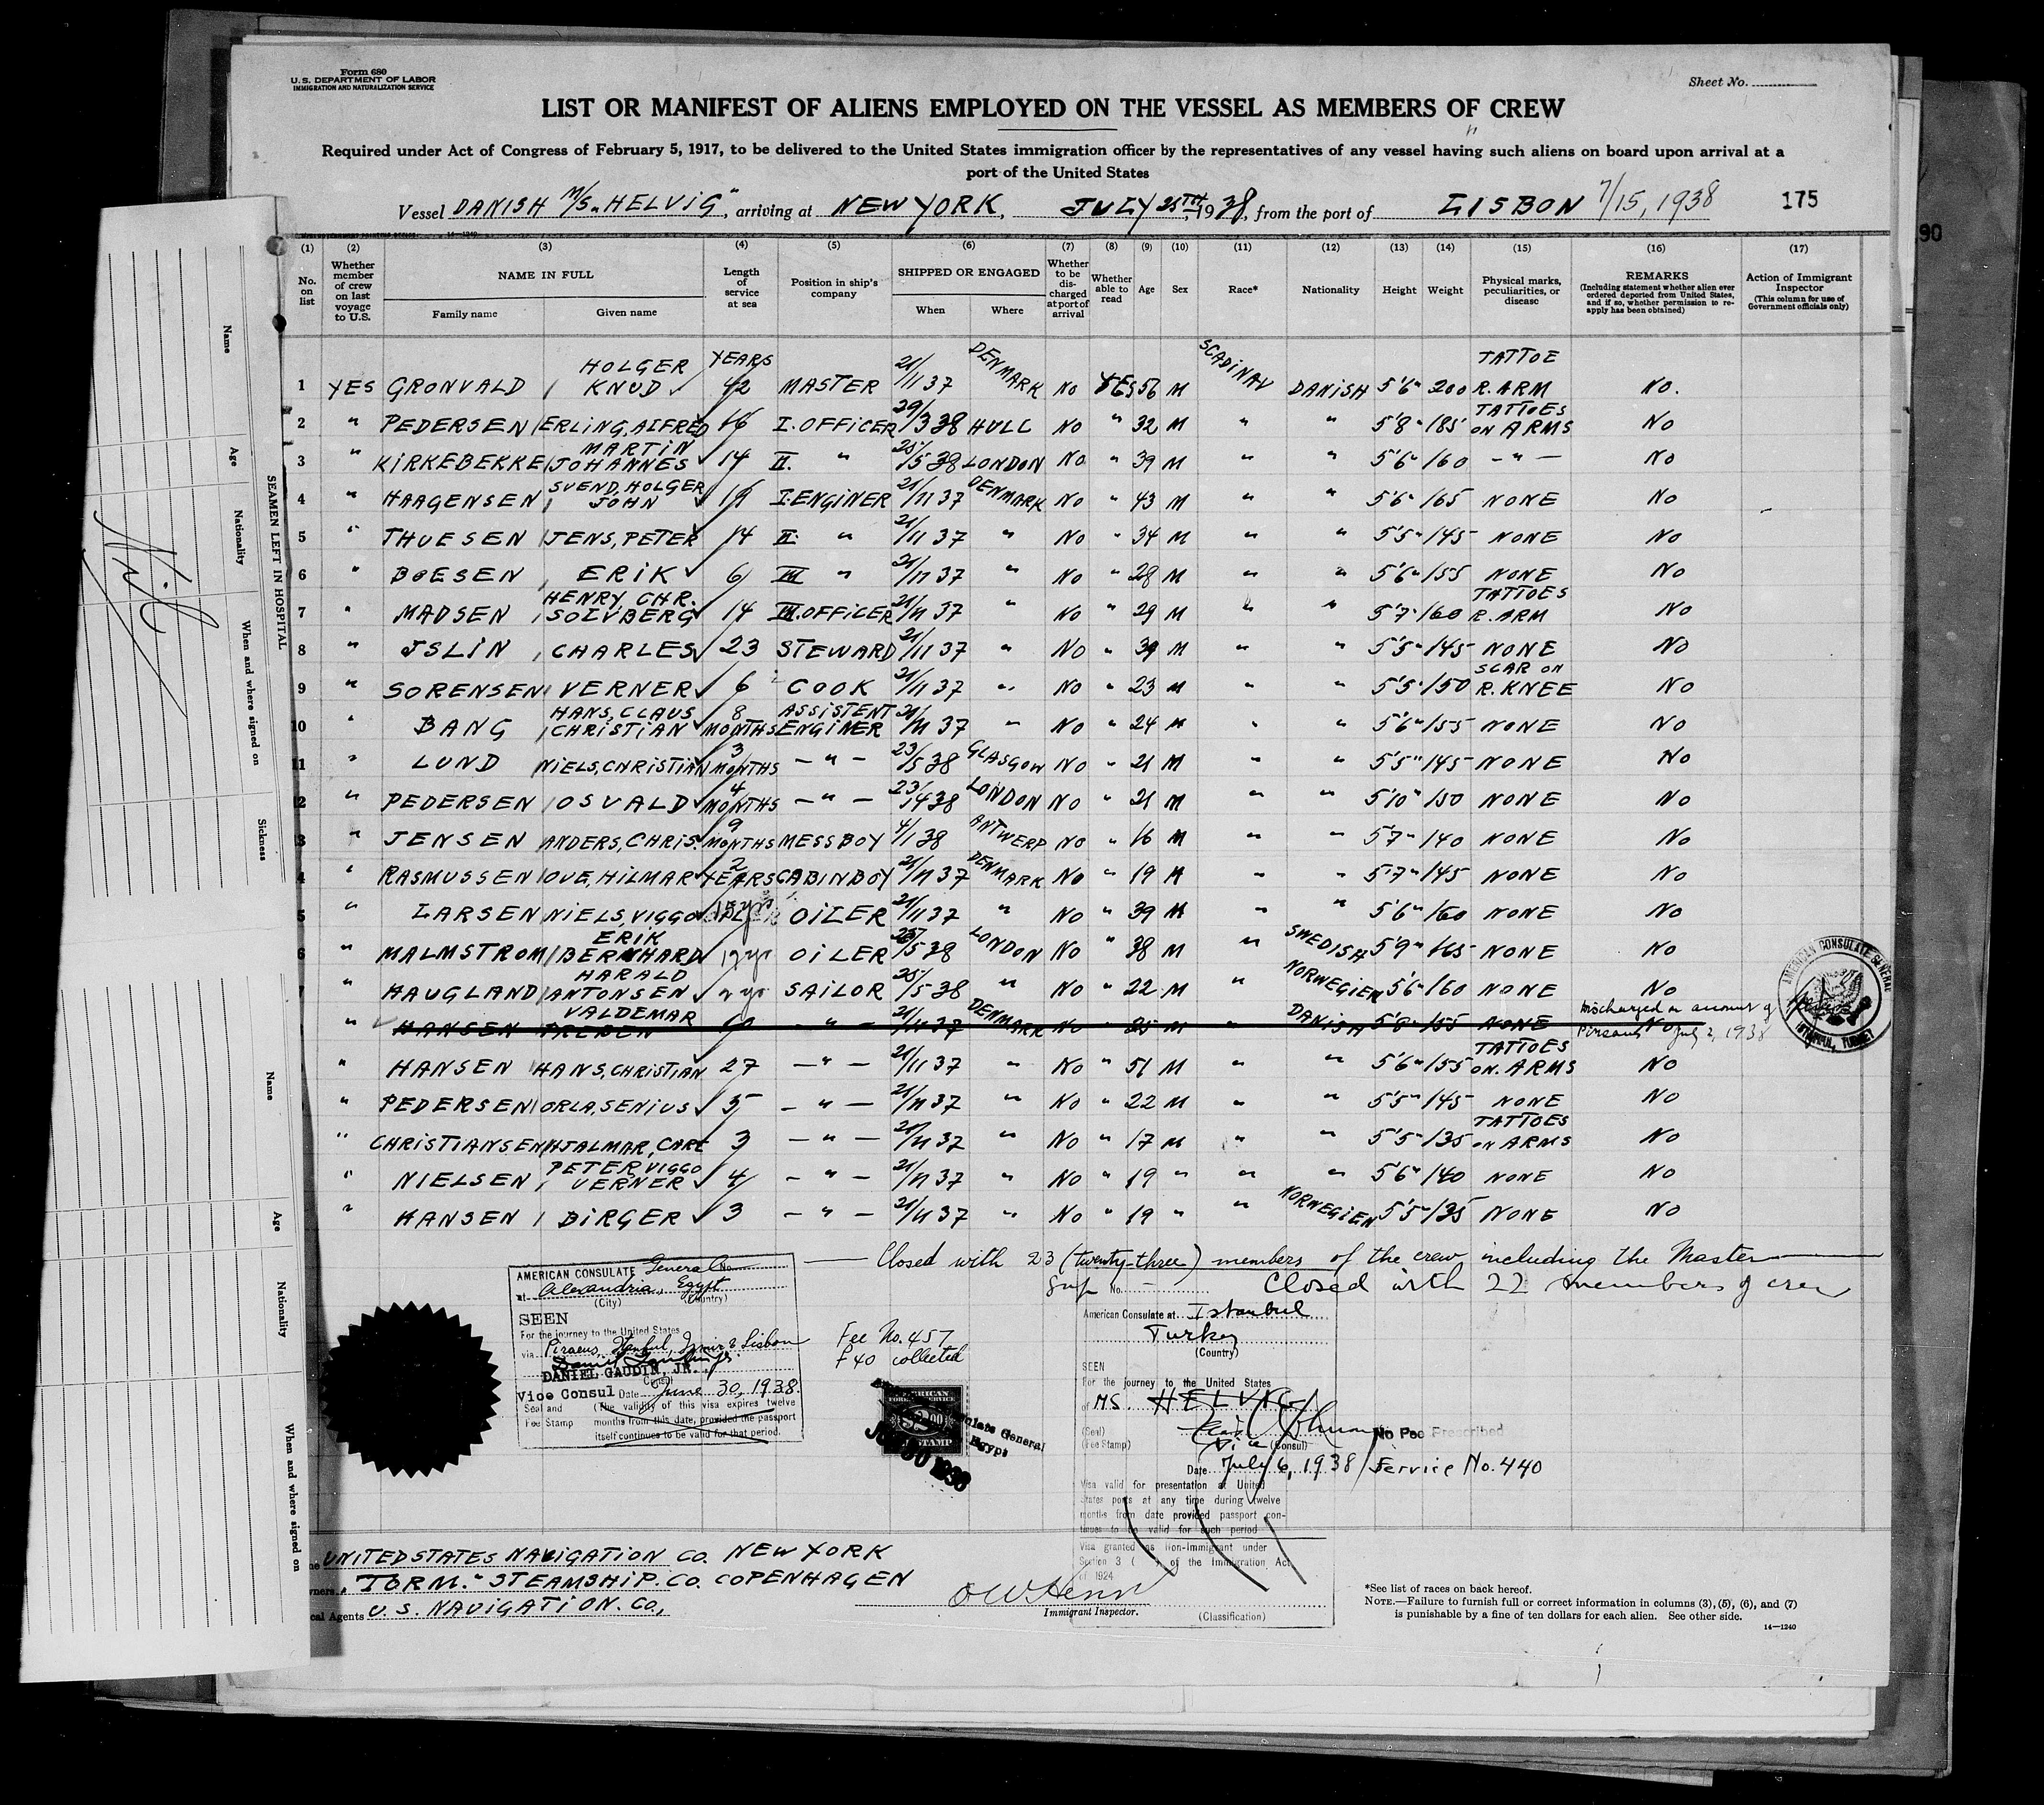 Form 680
U.S. DEPARTMENT OF LABOR
IMMIGRATION AND NATURALIZATION SERVICE
Sheet No.
LIST OR MANIFEST OF ALIENS EMPLOYED ON THE VESSEL AS MEMBERS OF CREW
Required under Act of Congress of February 5, 1917, to be delivered to the United States immigration officer by the representatives of any vessel having such aliens on board upon arrival at a
port of the United States
Vessel DANISH M/S "HELVIG", arriving at NEW YORK, JULY 25TH, 1938, from the port of LISBON 7/15, 1938 175
90
(1) (2) (3) (4) (5) (6) (7) (8) (9) (10) (11) (12) (13) (14) (15) (16) (17)
No. on list
Whether member of crew on last voyage to U.S.
NAME IN FULL
Family name Given name
Length of service at sea
Position in ship's company
SHIPPED OR ENGAGED
When Where
Whether to be discharged at port of arrival
Whether able to read
Age
Sex
Race*
Nationality
Height
Weight
Physical marks, peculiarities, or disease
REMARKS
(Including statement whether alien ever ordered deported from United States, and if so, whether permission to re-apply has been obtained)
Action of Immigrant Inspector
(This column for use of Government officials only)
1 YES GRONVALD, HOLGER KNUD YEARS 42 MASTER 21/11 37 DENMARK No YES 56 M SCADINAV DANISH 5'6" 200 TATTOE R. ARM No.
2 " PEDERSEN ERLING, ALFRED 16 I. OFFICER 29/3 38 HULL No " 32 M " " 5'8" 185 TATTOES ON ARMS No
3 " KIRKEBEKKE MARTIN JOHANNES 14 II. " 25/5 38 LONDON No " 39 M " " 5'6" 160 - " - No
4 " HAAGENSEN SVEND, HOLGER JOHN 19 I. ENGINER 21/11 37 DENMARK No " 43 M " " 5'6" 165 NONE No
5 " THUESEN JENS, PETER 14 II. " 21/11 37 " No " 34 M " " 5'5" 145 NONE No
6 " BOESEN, ERIK 6 III " 21/11 37 " No " 28 M " " 5'6" 155 NONE No
7 " MADSEN, HENRY CHR. SOLVBERG 14 III. OFFICER 21/11 37 " No " 29 M " " 5'7" 160 TATTOES R. ARM No
8 " JSLIN, CHARLES 23 STEWARD 21/11 37 " No " 39 M " " 5'5" 145 NONE No
9 " SORENSEN VERNER 6 COOK 21/11 37 " No " 23 M " " 5'5" 150 SCAR ON R. KNEE No
10 " BANG HANS, CLAUS CHRISTIAN 8 MONTHS ASSISTENT ENGINER 21/11 37 " No " 24 M " " 5'6" 155 NONE No
11 " LUND NIELS, CHRISTIAN 3 MONTHS - " - 23/5 38 GLASGOW No " 21 M " " 5'5" 145 NONE No
12 " PEDERSEN OSVALD 4 MONTHS - " - 23/4 38 LONDON No " 21 M " " 5'10" 150 NONE No
13 " JENSEN ANDERS, CHRIS. 9 MONTHS MESSBOY 4/1 38 ANTWERP No " 16 M " " 5'7" 140 NONE No
4 " RASMUSSEN OVE, HILMAR 2 YEARS CABINBOY 21/11 37 DENMARK No " 19 M " " 5'7" 145 NONE No
5 " LARSEN NIELS, VIGGO 15 yrs OILER 21/11 37 " No " 39 M " " 5'6" 160 NONE No
6 " MALMSTROM ERIK BERNHARD 12 yrs OILER 25/5 38 LONDON No " 38 M " SWEDISH 5'9" 165 NONE No
7 " HAUGLAND HARALD ANTONSEN 2 yrs SAILOR 25/5 38 " No " 22 M " NORWEGIEN 5'6" 160 NONE No
" HANSEN VALDEMAR PREBEN - " - 21/11 37 DENMARK No " 25 M " DANISH 5'8" 155 NONE No Discharged on account of Piraeus July 2, 1938
AMERICAN CONSULATE GENERAL ISTANBUL, TURKEY
" HANSEN HANS, CHRISTIAN 27 - " - 21/11 37 " No " 51 M " " 5'6" 155 TATTOES ON. ARMS No
" PEDERSEN ORLA, SENIUS 5 - " - 21/11 37 " No " 22 M " " 5'5" 145 NONE No
" CHRISTIANSEN HJALMAR, CARL 3 - " - 21/11 37 " No " 17 M " " 5'5" 135 TATTOES ON ARMS No
" NIELSEN, PETER VIGGO VERNER 4 - " - 21/11 37 " No " 19 " " " 5'6" 140 NONE No
" HANSEN, BIRGER 3 - " - 21/11 37 " No " 19 " " NORWEGIEN 5'5" 135 NONE No
Closed with 23 (twenty-three) members of the crew including the Master
Closed with 22 members of crew
AMERICAN CONSULATE General No.
at Alexandria, Egypt
(City) (Country)
SEEN
For the journey to the United States
via Piraeus, Istanbul, Izmir & Lisbon
DANIEL GAUDIN, JR.
Consul
Vice Consul Date June 30, 1938.
Seal and Fee Stamp
(The validity of this visa expires twelve
months from this date, provided the passport
itself continues to be valid for that period.
Fee No. 457
₤40 collected
AMERICAN FOREIGN SERVICE $2.00 FEE STAMP
Consulate General
Egypt
JUN 30 1938
No.
American Consulate at Istanbul
Turkey
(Country)
SEEN
For the journey to the United States
of MS. HELVIG
(Seal)
(Fee Stamp)
Vice (Consul)
No Fee Prescribed
Date July 6, 1938 Service No. 440
Visa valid for presentation at United
States ports at any time during twelve
months from date provided passport con-
tinues to be valid for such period
Visa granted as Non-Immigrant under
Section 3 ( ) of the Immigration Act
of 1924
(Classification)
UNITED STATES NAVIGATION CO. NEW YORK
"TORM." STEAMSHIP. CO. COPENHAGEN
cal Agents U.S. NAVIGATION. CO,
Immigrant Inspector.
*See list of races on back hereof.
NOTE.—Failure to furnish full or correct information in columns (3), (5), (6), and (7)
is punishable by a fine of ten dollars for each alien. See other side.
14—1240
SEAMEN LEFT IN HOSPITAL
Name Age Nationality When and where signed on Sickness
Nil
Name Age Nationality When and where signed on